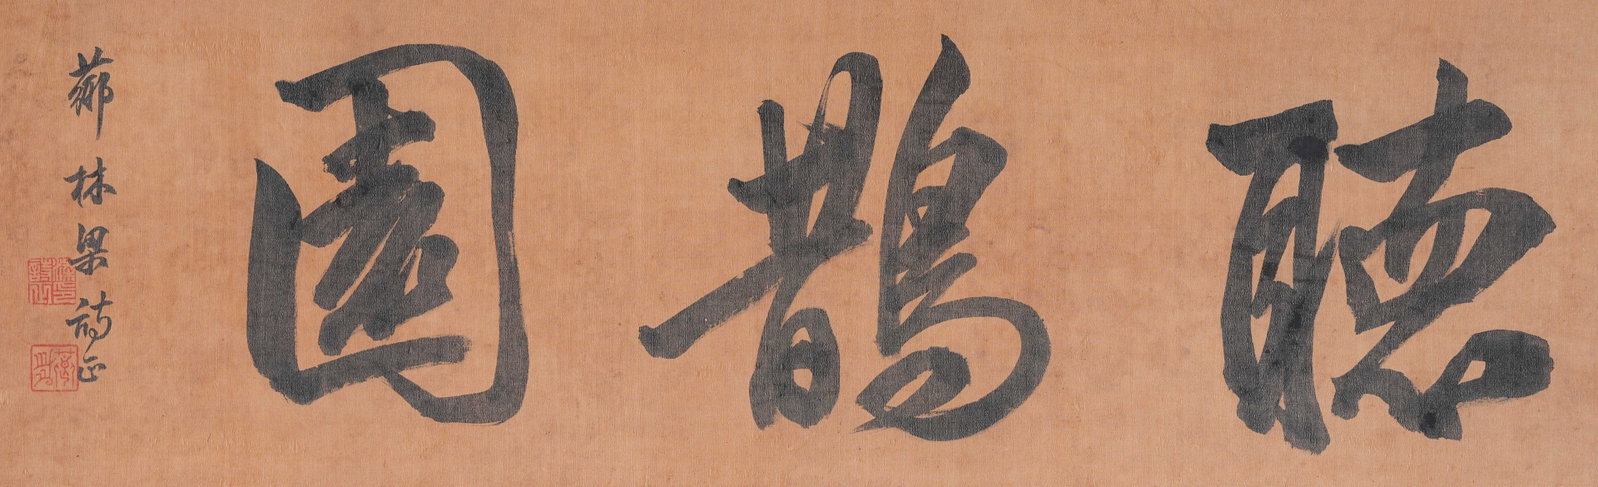 聽鵲園
薌林梁詩正